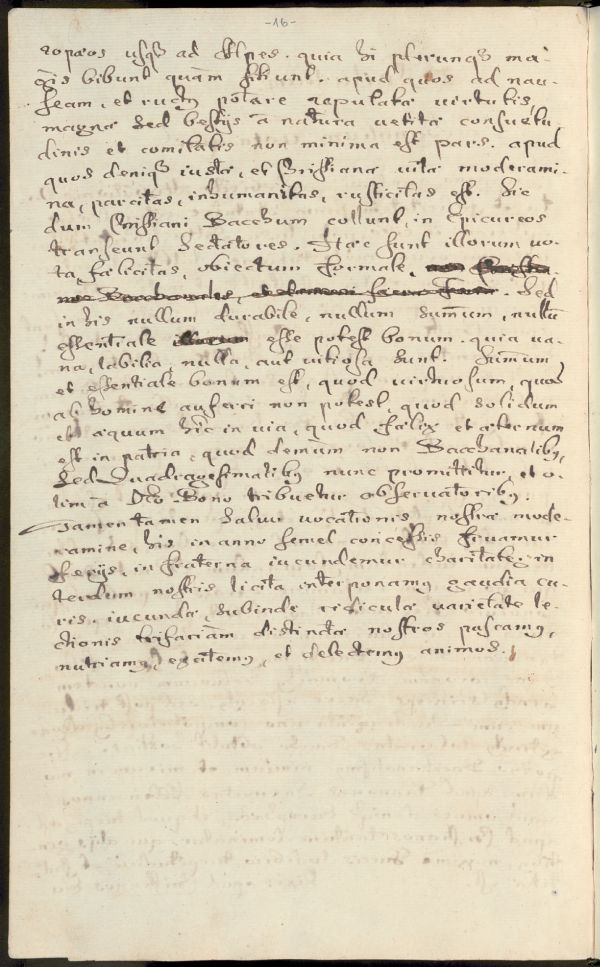 -16-
ropæos usq₃ ad Alpes. quia hi plerunq₃ ma-
gis bibunt quàm sitiunt. apud quos ad nau-
seam, et ructũ potare reputata virtutis,
magna sed bestijs à natura vetita consuetu-
dinis et comitatis non minima est pars. apud
quos deniq₃ iusta, et Christiana vita moderami-
na, parcitas, inhumanitas, rusticitas est. Sic
dum Christiani Bacchum collunt, in Epicureos
transeunt sectatores. Hæc sunt illorum vo-
ta, fælicitas, obiectum formale,
Sed
in his nullum durabile, nullum summum, nullũ
essentiale esse potest bonum. quia va-
na, labilia, nulla, aut vitiosa sunt. Summum
et essentiale bonum est, quod virtuosum, quod
ab homine auferri non potest, quod solidum
et æquum hic in via, quod fælix et æternum
est in patria, quod demum non Bacchanalibꝫ,
sed Quadragesimalibꝫ nunc promittitur, et o-
lim à Deo Bono tribuetur observatoribꝫ.
Tamen tamen salvo vocationis nostræ mode-
ramine, his in anno semel concessis fruamur
ferijs, in fraterna iucundemur charitate, in-
terdum nostris licita interponamꝫ gaudia cu-
ris, iucunda, subinde ridicula varietate le-
ctionis trifariam distincta nostros pascamꝫ,
nutriamꝫ, excitemꝫ, et delectemꝫ animos.